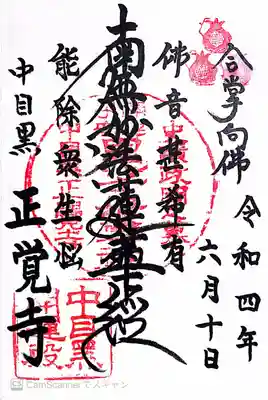 合掌向佛
令和四年
六月十日
佛音甚希有
南無妙法蓮華經
能除衆生悩
中目黒
正覚寺
中目黒
CS CamScanner でスキャン